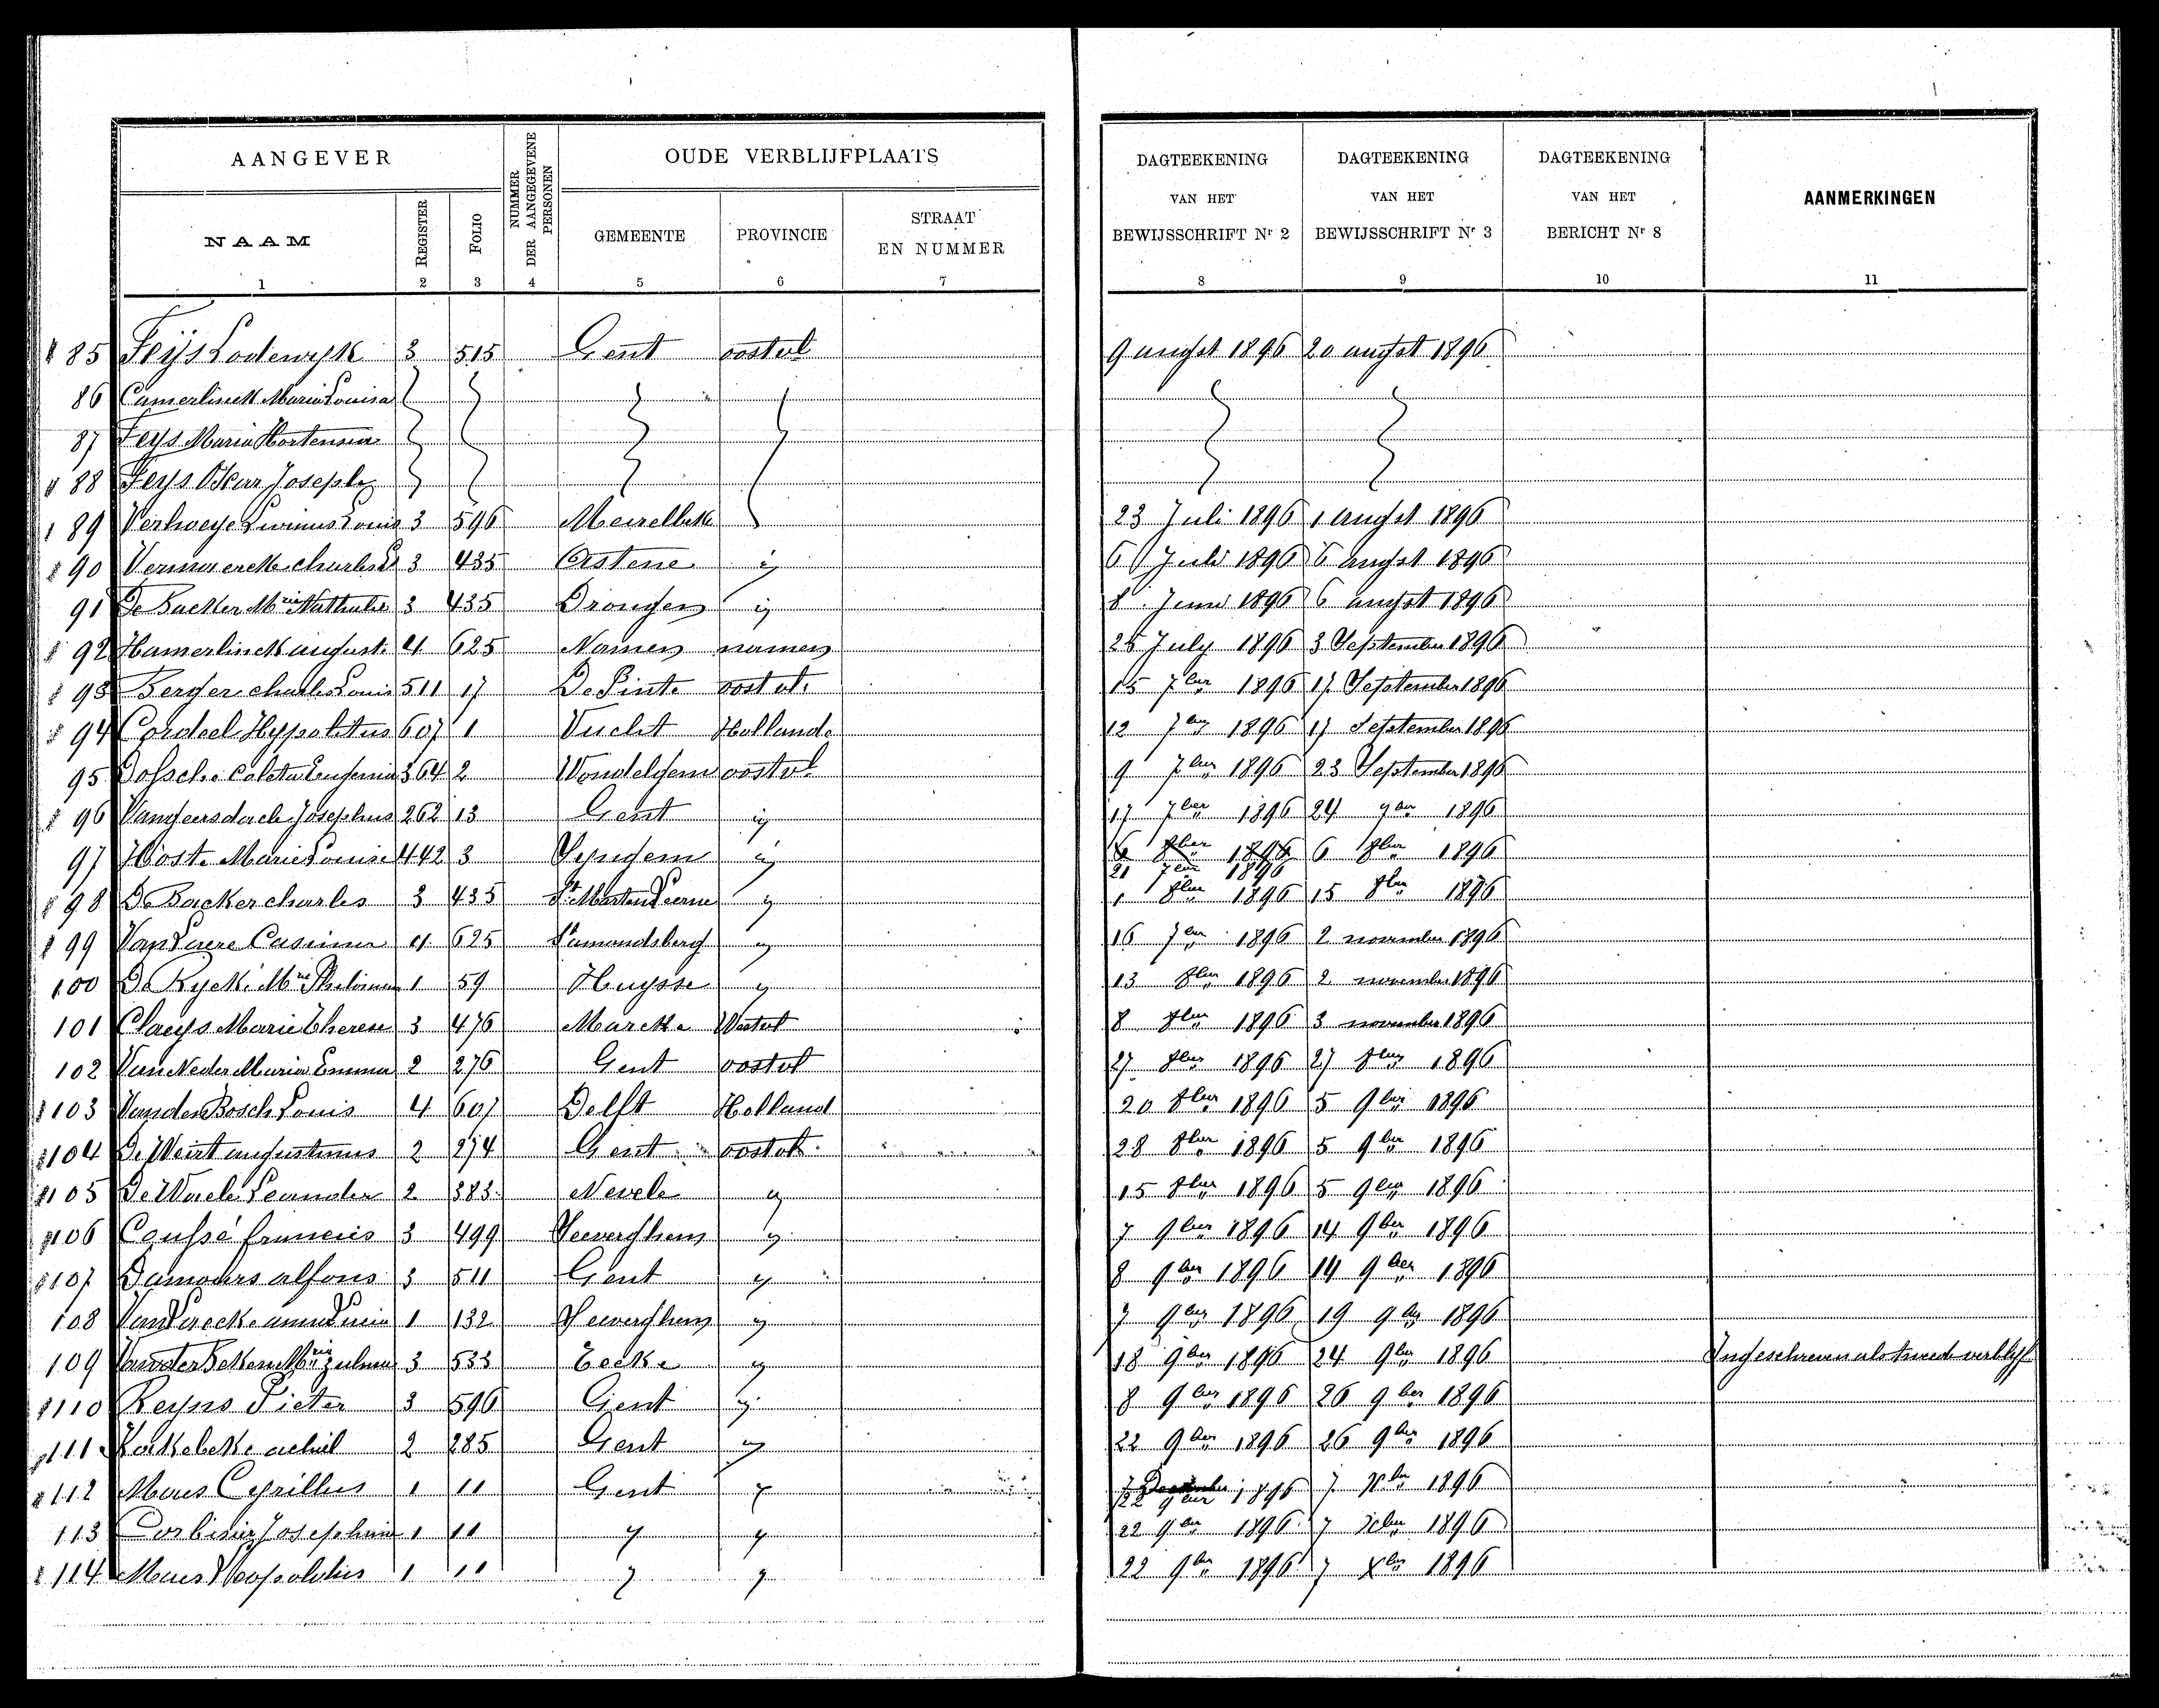 AANGEVER NUMMER DER AANGEGEVENE PERSONEN OUDE VERBLIJFPLAATS DAGTEEKENING VAN HET BEWIJSSCHRIFT Nr 2 DAGTEEKENING VAN HET BEWIJSSCHRIFT Nr 3 DAGTEEKENING VAN HET BERICHT Nr 8 AANMERKINGEN
NAAM REGISTER FOLIO GEMEENTE PROVINCIE STRAAT EN NUMMER
1 2 3 4 5 6 7 8 9 10 11
85 Feÿs Lodewyk 3 515 Gent oostvl 9 augst 1896 20 augst 1896
86 Camerlinck Maria Louisa
87 Feys Maria Hortensia
88 Feys Oscar Joseph
89 Verhoeye Livinus Louis 3 596 Meirelbeke 23 Juli 1896 1 augst 1896
90 Vermaercke charles L 3 435 Astene ij 6 Juli 1896 6 augst 1896
91 De Backer Mrie Nathalie 3 435 Drongen ij 8 Juni 1896 6 augst 1896
92 Hamerlinck august 4 625 Namen namen 25 July 1896 3 September 1896
93 Berger charles Louis 511 17 De Pinte oostvl. 15 7ber 1896 17 September 1896
94 Cordeel Hypolitus 607 1 Vucht Hollande 12 7ber 1896 17 September 1896
95 Dossche Coleta Eugenia 364 2 Wondelgem oostvl 9 7ber 1896 23 September 1896
96 Vangeersdaele Josephus 262 13 Gent ij 17 7ber 1896 24 9ber 1896
97 Hoste Marie Louise 442 3 Syngem ij 6 8ber 1896 6 8ber 1896
21 7ber 1896
98 De Backer charles 3 435 St Marten Leerne y 1 8ber 1896 15 8ber 1896
99 Van Laere Casimir 4 625 St amandsberg y 16 7ber 1896 2 november 1896
100 De Rycke Mrie Philomena 1 59 Huysse y 13 8ber 1896 2 november 1896
101 Claeys Marie Therese 3 476 Marcke Westvl 8 8ber 1896 3 november 1896
102 Van Neder Maria Emma 2 276 Gent oostvl 27 8ber 1896 27 8ber 1896
103 Van den Bosch Louis 4 607 Delft Holland 20 8ber 1896 5 9ber 1896
104 De Weirt augustinus 2 274 Gent oostvl. 28 8ber 1896 5 9ber 1896
105 De Waele Leander 2 383 Nevele y 15 8ber 1896 5 9ber 1896
106 Coussé francies 3 499 Severghem y 7 9ber 1896 14 9ber 1896
107 Damours alfons 3 511 Gent y 8 9ber 1896 14 9ber 1896
108 Van Laecke anna Lucia 1 132 Severghem y 7 9ber 1896 19 9ber 1896
109 Van der Beken Mrie Zulma 3 533 Eecke y 18 9ber 1896 24 9ber 1896 Ingeschreven als tweed verblyf
110 Reyns Pieter 3 596 Gent y 8 9ber 1896 26 9ber 1896
111 Kockelcke achiel 2 285 Gent y 22 9ber 1896 26 9ber 1896
112 Maes Cyrillus 1 11 Gent y 7 December 1896 7 Xber 1896
22 9ber
113 Corbisier Josephina 1 11 y y 22 9ber 1896 7 Xber 1896
114 Maes Leopoldus 1 11 y y 22 9ber 1896 7 Xber 1896